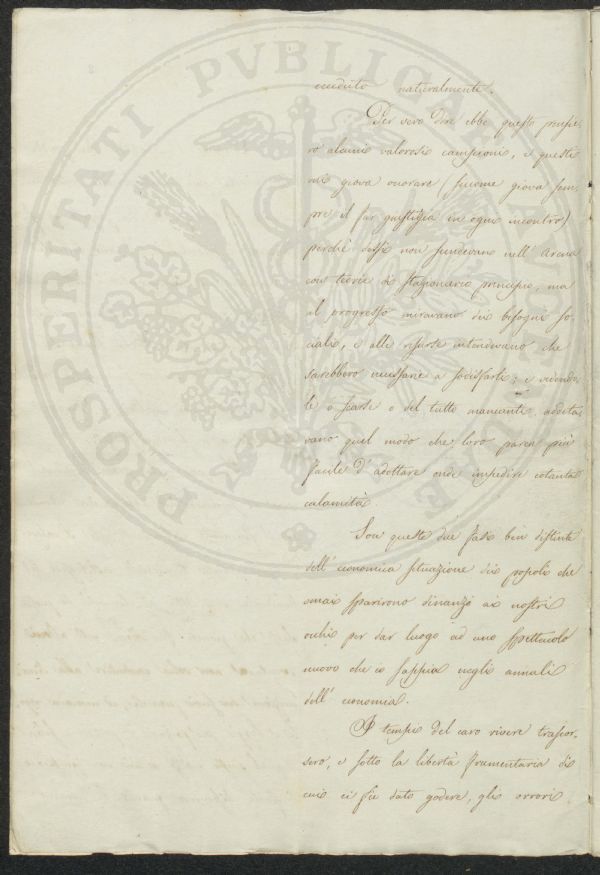 PROSPERITATI PVBLICAE
cadute naturalmente.
Per vero dire ebbe questo pensie,
ro alcuni valorosi campioni, e questi
mi giova onorare (siccome giova sem,
pre il far giustizia in ogni incontro)
perchè dessi non scendevano nell' Arena
con teorie di stazionario principio, ma
al progresso miravano dei bisogni so,
ciali, e alle risorse intendevano che
sarebbero necessarie a sodisfarli; e vedendo,
le o scarse o del tutto mancanti, addita,
vano quel modo che loro parea più
facile d' adottare onde impedire cotanta
calamità.
Son queste due fasi ben distinte
dell' economica situazione dei popoli che
omai sparirono dinanzi ai nostri
occhi per dar luogo ad uno spettacolo
nuovo che io sappia negli annali
dell' economia.
I tempi del caro vivere trascor,
sero, e sotto la libertà frumentaria di
cui ci fu dato godere, gli orrori